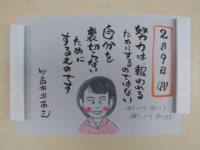 2月9日(月)
努力は報われる
ためにするのではない
自分を
裏切らない
ために
するものです